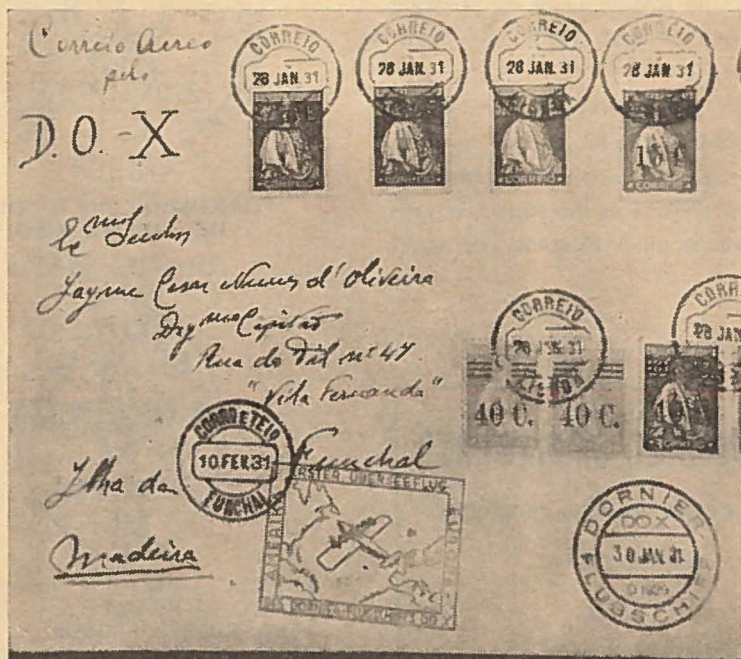 Correio Aereo
pelo
D.O.-X
CORREIO
28 JAN. 31
CORREIO
28 JAN. 31
CORREIO
28 JAN. 31
LISBOA
CORREIO
28 JAN. 31
CORREIO
CORREIO
CORREIO
15 C.
CORREIO
Exmo Senhor
Jayme Cesar Nunes d'Oliveira
Digmo Capitão
Rua do Til nº 47
"Vila Fernanda"
Funchal
Ilha da
Madeira
CORREIO
28 JAN. 31
LISBOA
40 C.
40 C.
CORREIO
28 JAN
10 FEV. 31
FUNCHAL
ERSTER ÜBERSEEFLUG
DES DORNIER-FLUGSCHIFFS DO X
DORNIER
DO X
30 JAN. 31
D 1929
FLUGSCHIFF